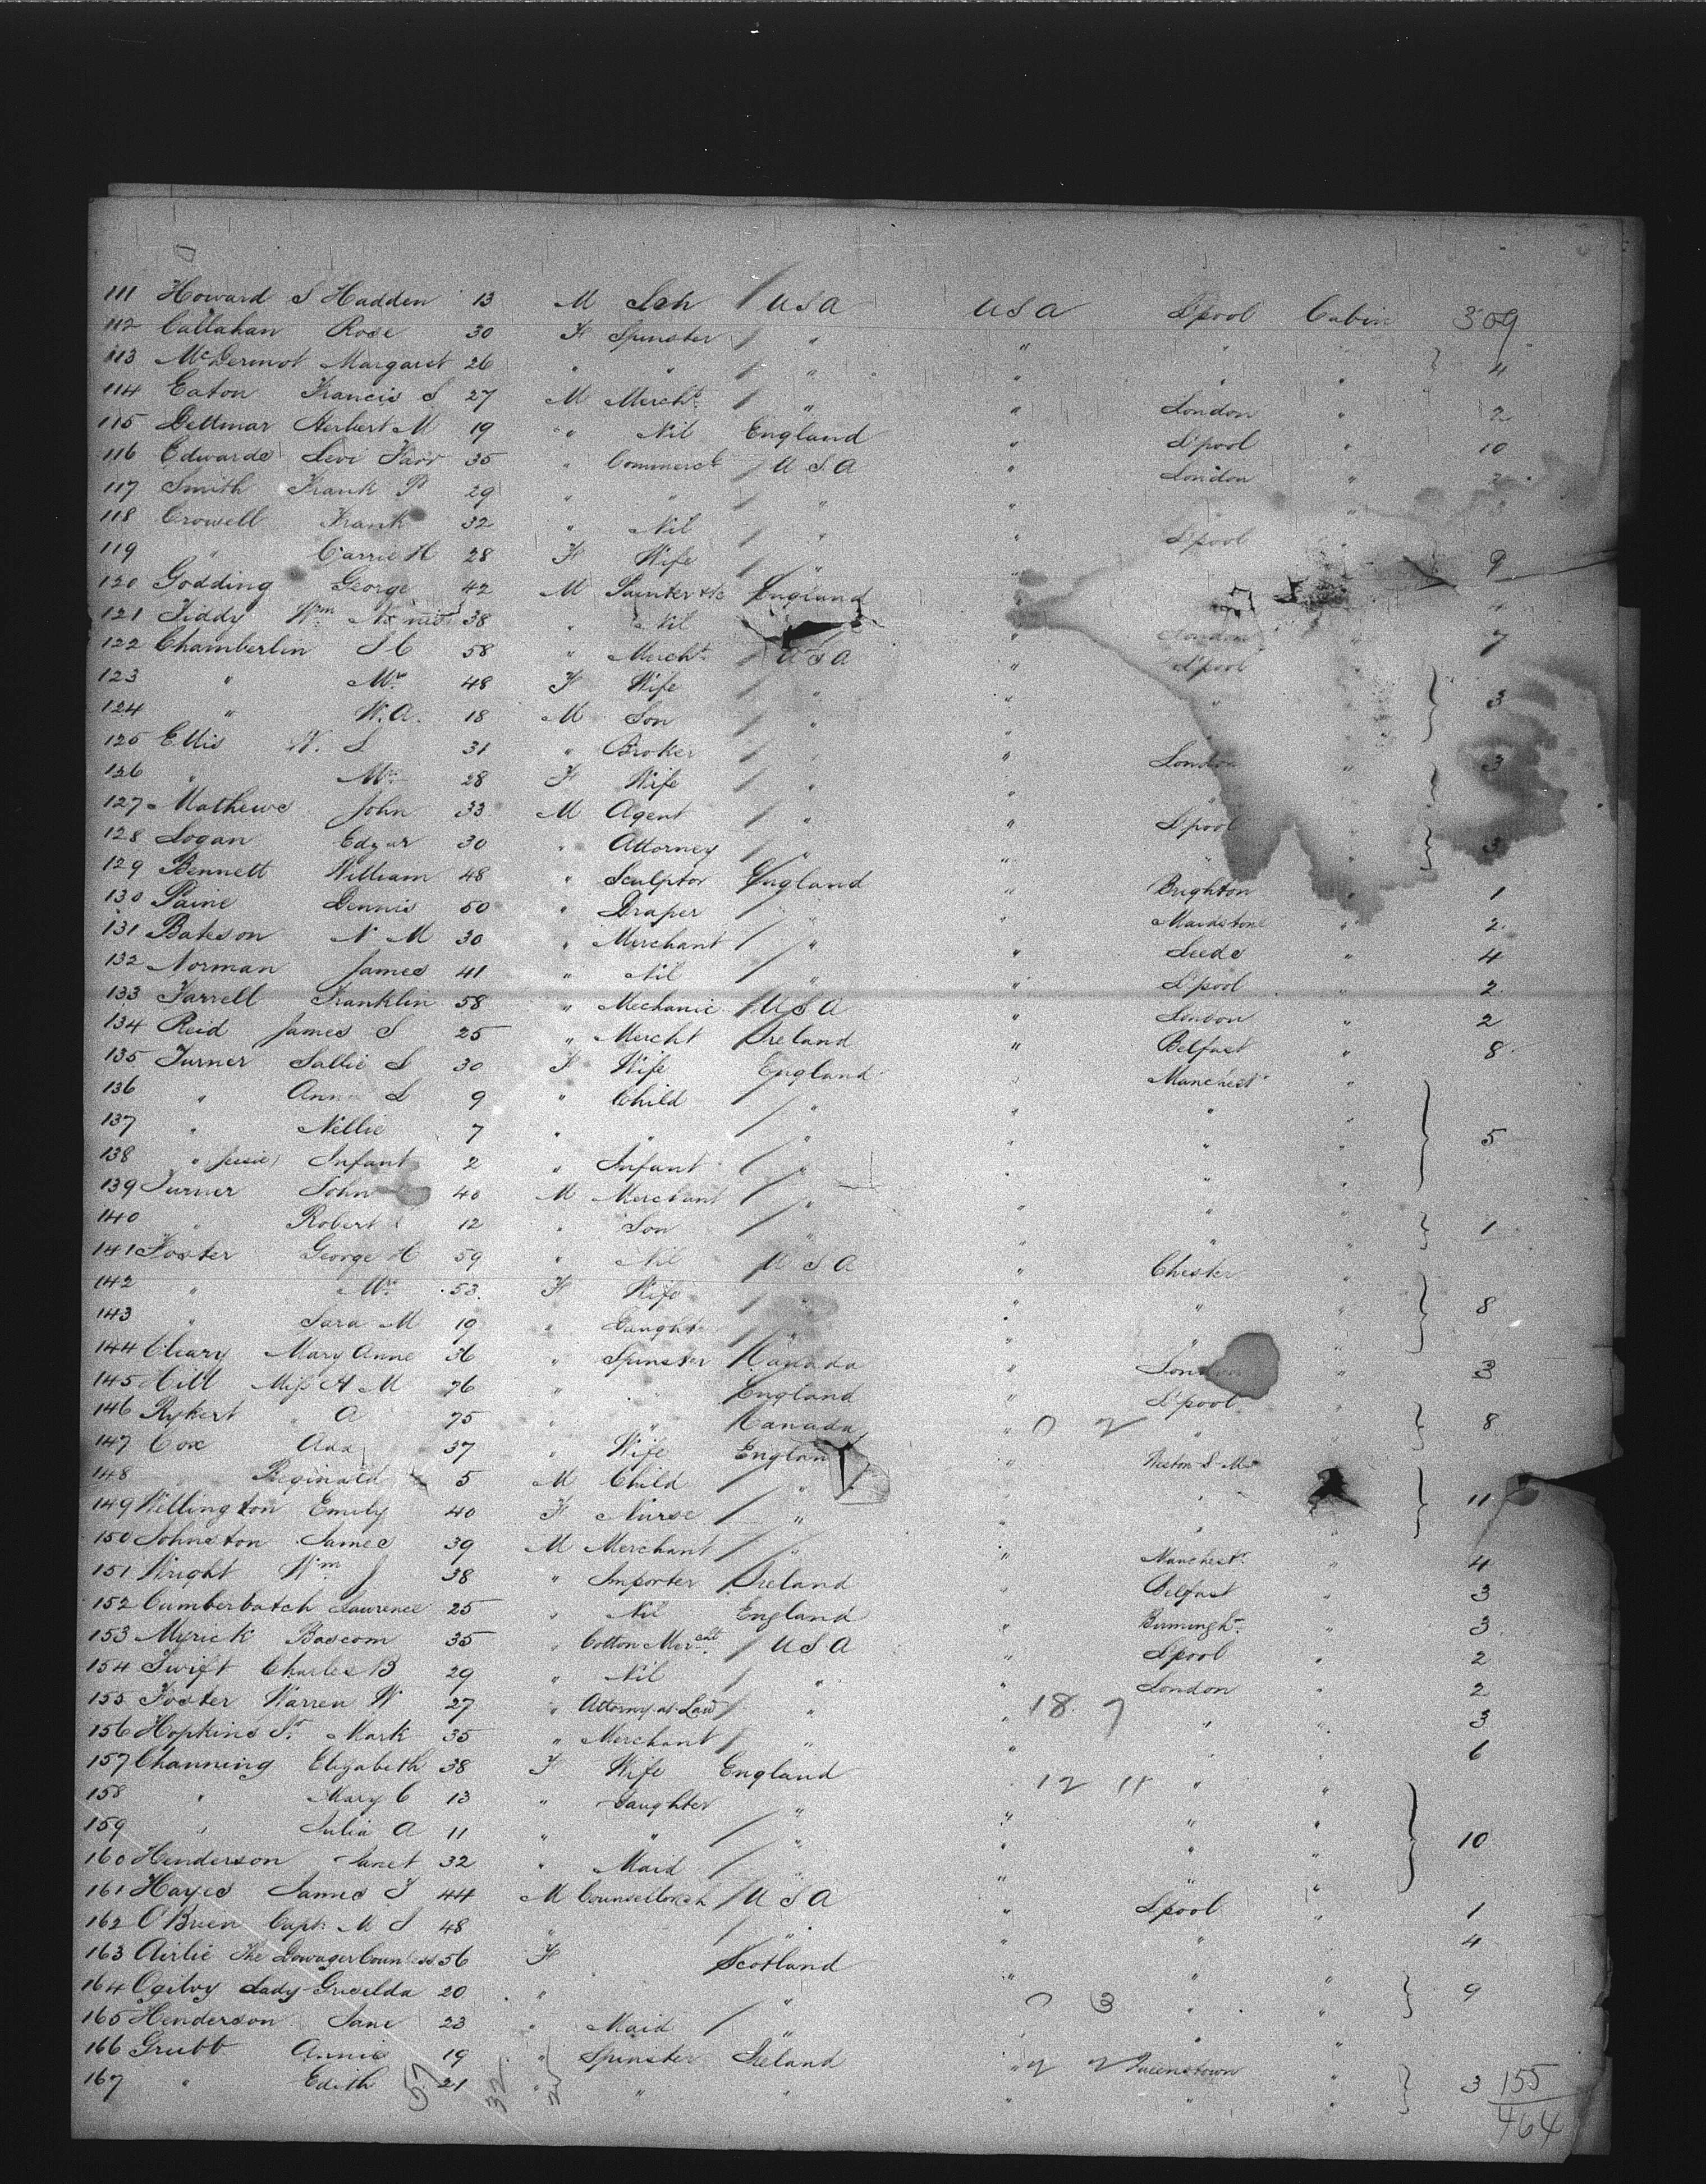 111 Howard S Hadden 13 M Sch / USA USA L'pool Cabin 309
112 Callahan Rose 30 F Spinster / " " " "
113 McDermot Margaret 26 " " / " " " " } 4
114 Eaton Francis S 27 M Mercht / " " London " 2
115 Dettmar Herbert M 19 " Nil England " L'pool " 10
116 Edwards Levi Farr 35 " Commercl / USA " London " 2
117 Smith Frank P 29 " " / " " " "
118 Crowell Frank 32 " Nil / " " L'pool
119 " Carrie H 28 F Wife / " " 9
120 Godding George 42 M England "
121 Tiddy Wm 38 " Nil " London " 7
122 Chamberlin S C 58 " Mercht / USA " L'pool
123 " Mrs 48 F Wife / " " " } 3
124 " W. A. 18 M Son / " "
125 Ellis W. S 31 " Broker / " " London " 3
126 " Mrs 28 F Wife / " " " }
127 Mathews John 33 M Agent / " " L'pool
128 Logan Edgar 30 " Attorney / " " " " } 3
129 Bennett William 48 " Sculptor England " Brighton " 1
130 Paine Dennis 50 " Draper / " " Maidstone " 2
131 Bateson N M 30 " Merchant / " " Leeds " 4
132 Norman James 41 " Nil / " " L'pool " 2
133 Farrell Franklin 58 " Mechanic / USA " London " 2
134 Reid James S 25 " Mercht Ireland " Belfast " 8
135 Turner Sallie S 30 F Wife England " Manchestr "
136 " Anna L 9 " Child / " " " "
137 " Nellie 7 " " / " " " " } 5
138 " Jessie) Infant 2 " Infant / " " " "
139 Turner John 40 M Merchant / " " " "
140 " Robert 12 " Son / " " " " } 1
141 Foster George H 59 " Nil / USA " Chester "
142 " Mrs 53 F Wife / " " " " } 8
143 " Sara M 19 " Daughter / " " " "
144 Cleary Mary Anne 36 " Spinster Canada " London " 3
145 Hill Miss A M 76 " " England " L'pool "
146 Rykert " A 75 " " Canada " 0 2 " " } 8
147 Cox Ada 37 " Wife England " Weston S. M.
148 Reginald 5 M Child / " " " } 11
149 Wellington Emily 40 F Nurse / " " " "
150 Johnston James 39 M Merchant / " " Manchestr " 4
151 Wright Wm J 38 " Importer Ireland " Belfast " 3
152 Cumberbatch Lawrence 25 " Nil England " Birminghm " 3
153 Myrick Bascom 35 " Cotton Mercht / USA " L'pool " 2
154 Swift Charles B 29 " Nil / " " London " 2
155 Foster Warren W 27 " Attorny at Law / " " 18 7 " " 3
156 Hopkins Sr Mark 35 " Merchant / " " " " 6
157 Channing Elizabeth 38 F Wife England " 12 11 " "
158 " Mary C 13 " Daughter " " " "
159 " Julia A 11 " " / " " " " } 10
160 Henderson Janet 32 " Maid / " " " "
161 Hayes James S 44 M / USA " L'pool " 1
162 O'Brien Capt. M S 48 " / " " " " 4
163 Airlie The Dowager Countess 56 F Scotland " " "
164 Ogilvy Lady Griselda 20 " " 0 3 " " } 9
165 Henderson Jane 23 " Maid / " " " "
166 Grubb Annie 19 " Spinster Ireland " 2 2 Queenstown "
167 " Edith 21 " " " " " " } 3 155
57 32 25 464